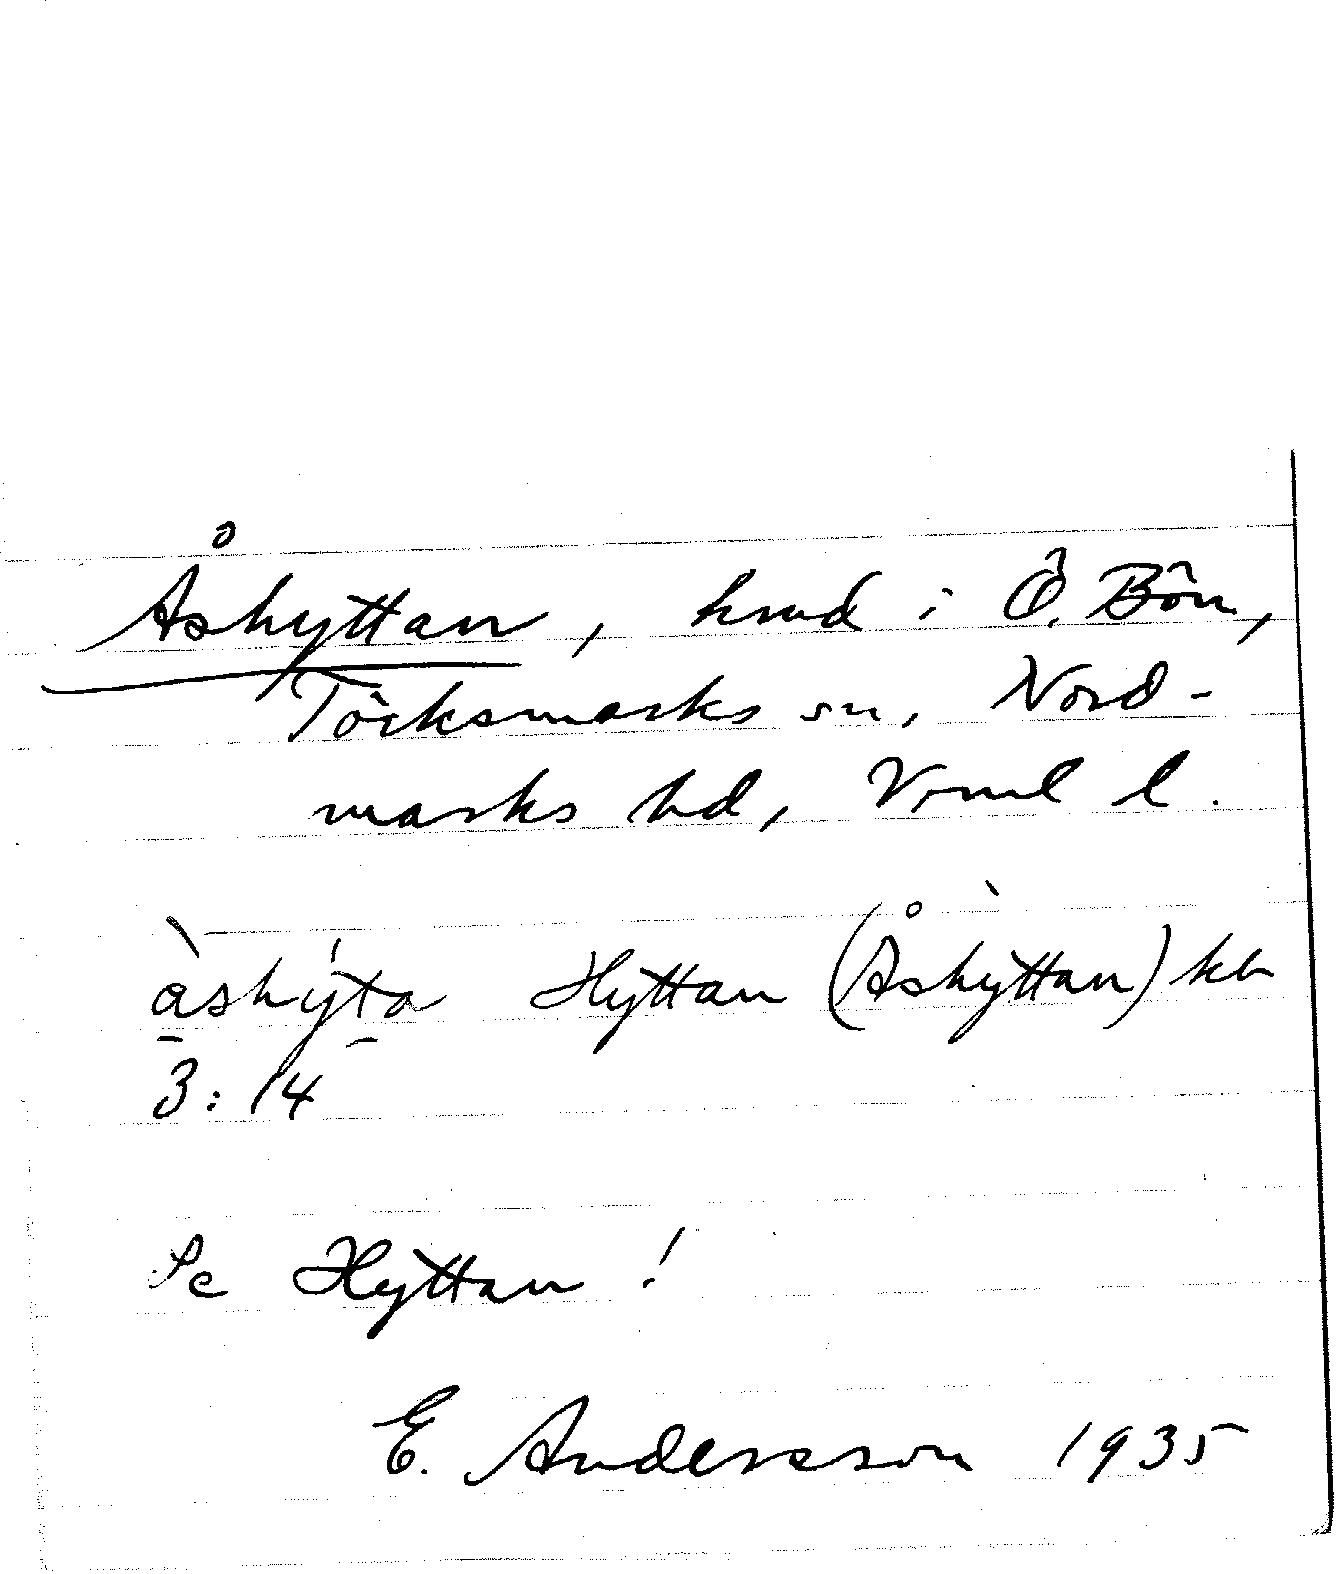 Åshyttan, hmd i Ö. Bön,
Töcksmarks sn, Nord-
marks hd, Vrml l.
Hyttan (Åshyttan)
3:14
Se Hyttan!
E. Andersson 1935